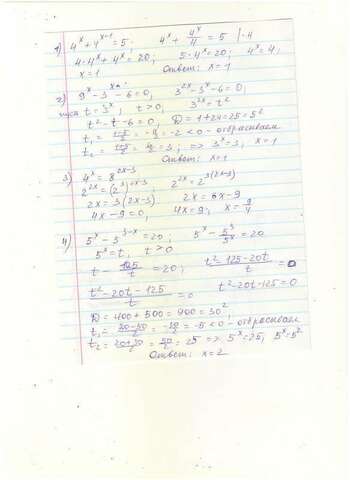 1) 4^x + 4^(x-1) = 5; 4^x + 4^x/4 = 5 | ·4
4·4^x + 4^x = 20; 5·4^x = 20; 4^x = 4;
x = 1 Ответ: x = 1
2) 9^x - 3^x - 6 = 0; 3^(2x) - 3^x - 6 = 0;
t = 3^x, t > 0; 3^(2x) = t^2
t^2 - t - 6 = 0, D = 1 + 24 = 25 = 5^2
t_1 = (1-5)/2 = -4/2 = -2 < 0 - отбрасываем
t_2 = (1+5)/2 = 6/2 = 3; => 3^x = 3; x = 1
Ответ: x = 1
3) 4^x = 8^(2x-3)
2^(2x) = (2^3)^(2x-3); 2^(2x) = 2^(3(2x-3))
2x = 3(2x-3) 2x = 6x - 9
4x - 9 = 0; 4x = 9; x = 9/4
4) 5^x - 5^(3-x) = 20; 5^x - 5^3/5^x = 20
5^x = t, t > 0
t - 125/t = 20; (t^2 - 125 - 20t)/t = 0
(t^2 - 20t - 125)/t = 0 t^2 - 20t - 125 = 0
D = 400 + 500 = 900 = 30^2;
t_1 = (20-30)/2 = -10/2 = -5 < 0 - отбрасываем
t_2 = (20+30)/2 = 50/2 = 25 => 5^x = 25; 5^x = 5^2
Ответ: x = 2